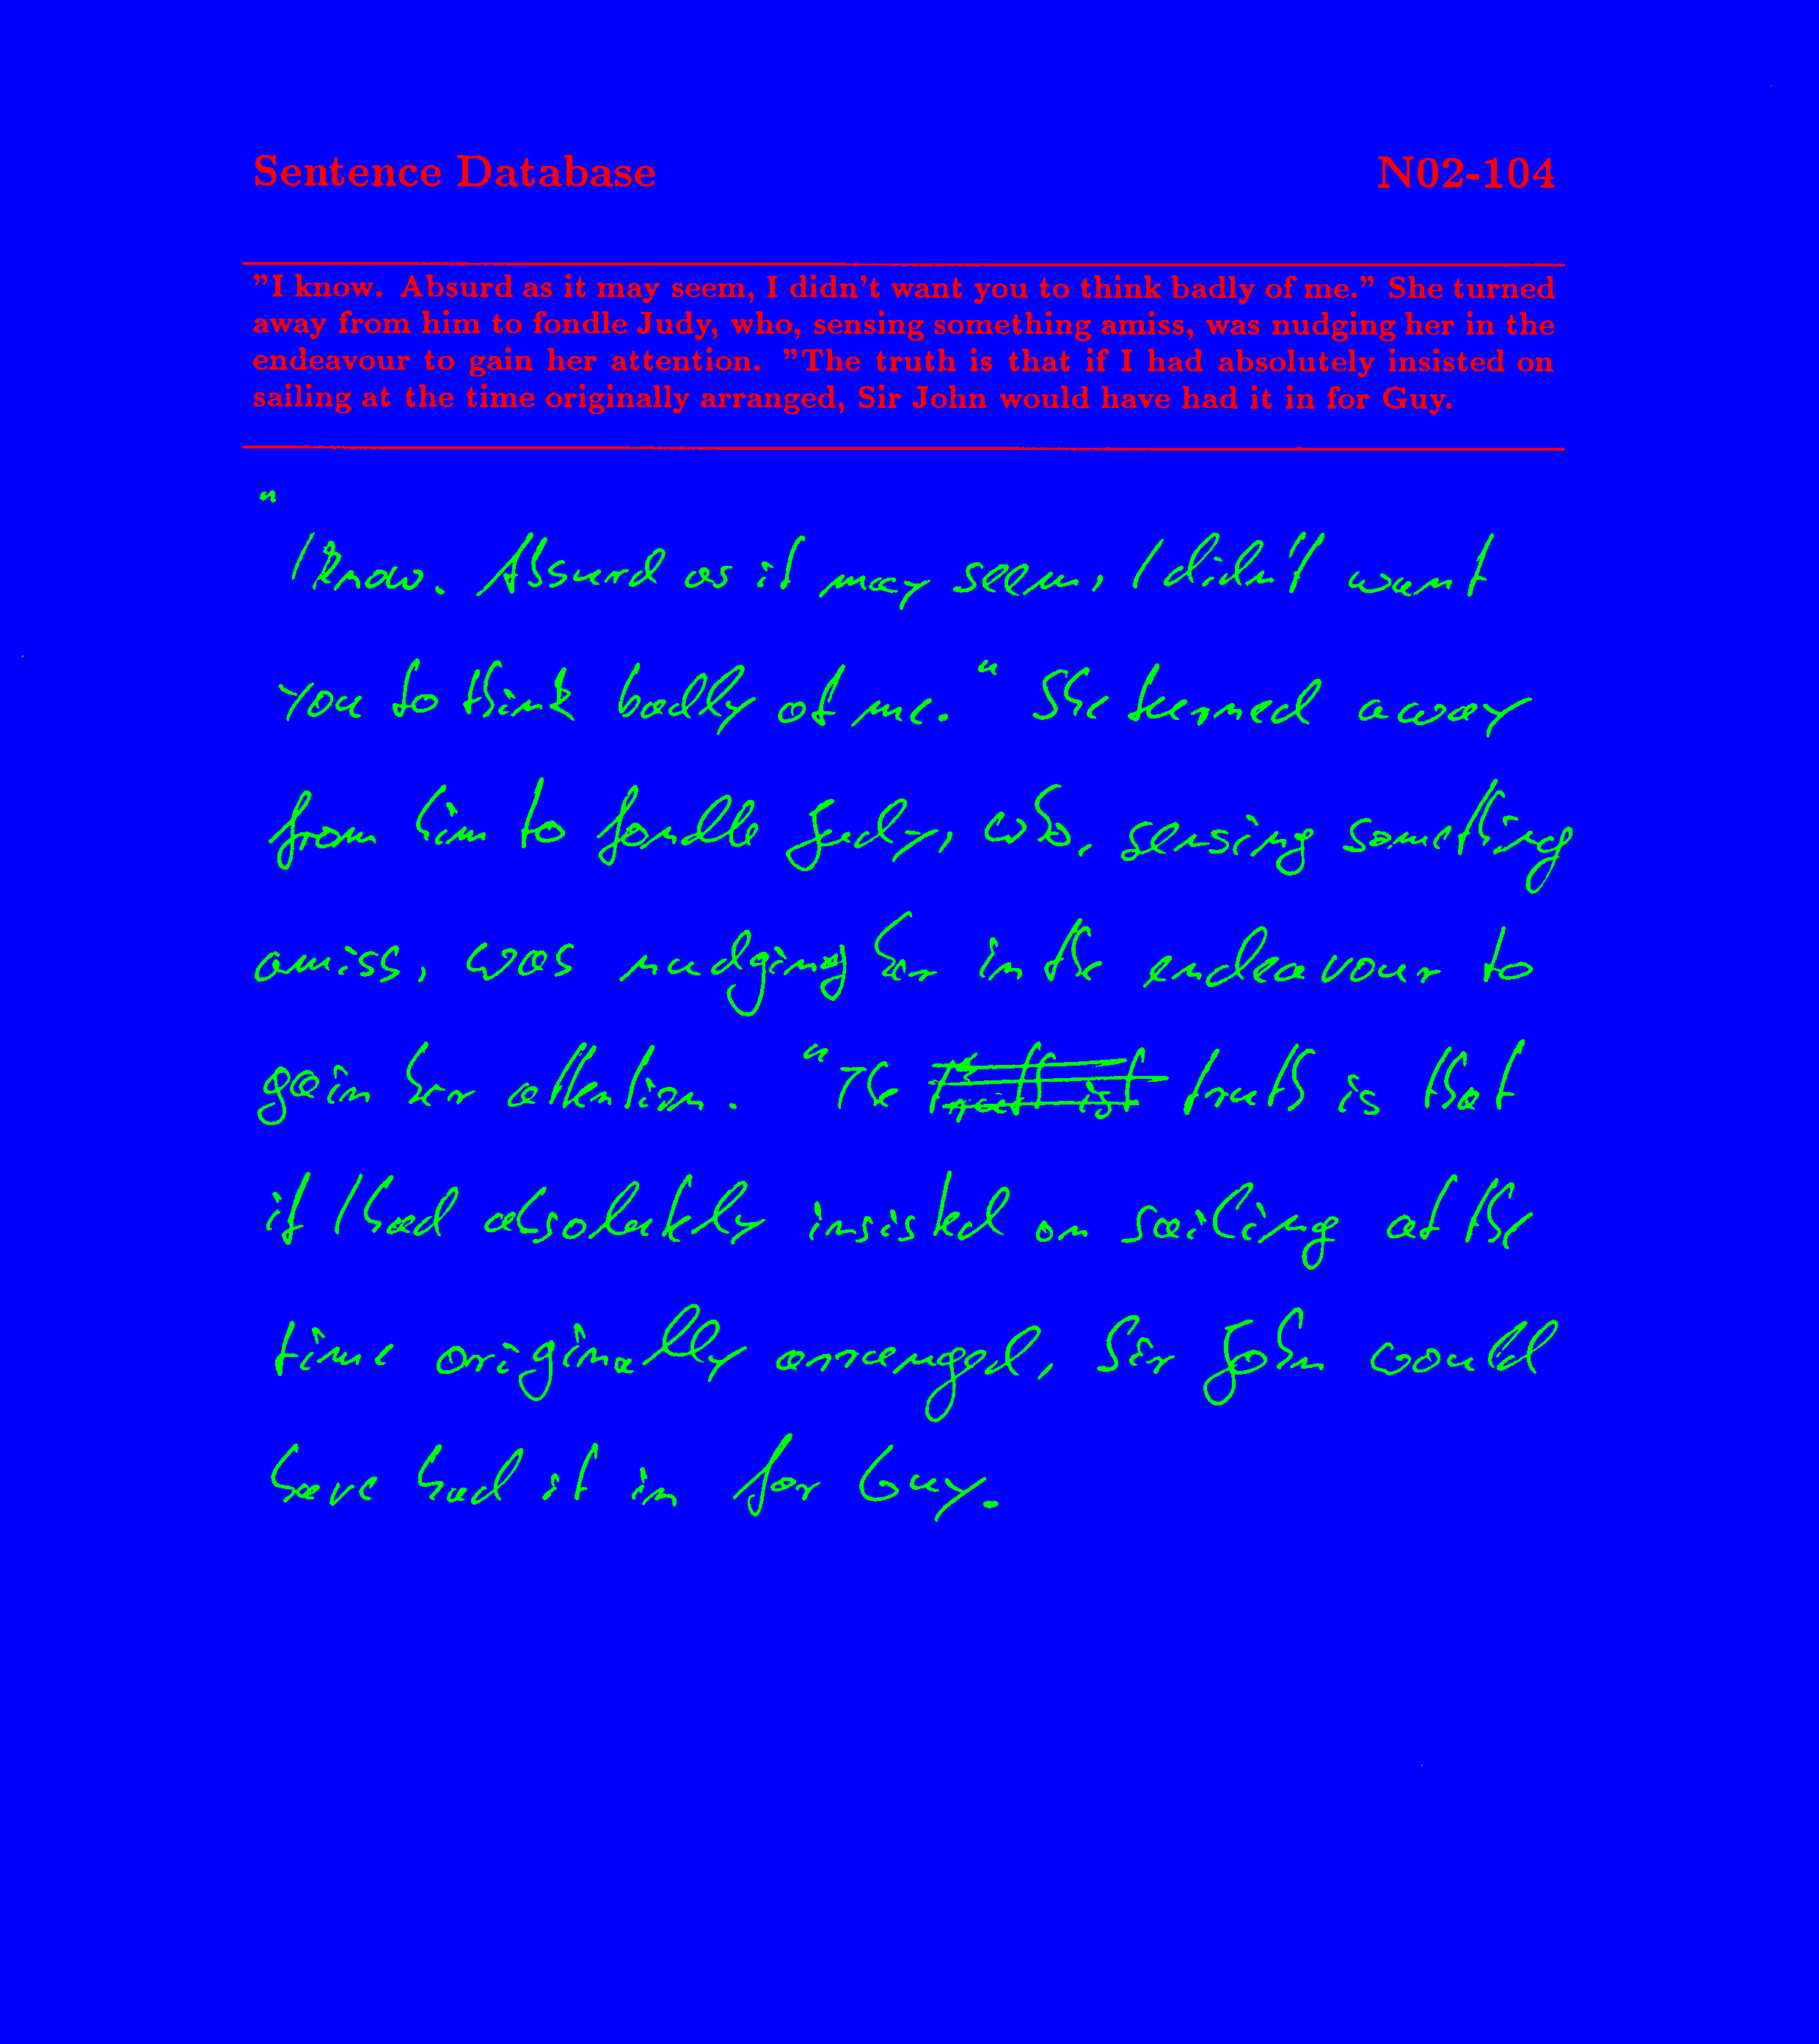 Sentence Database N02-104
"I know. Absurd as it may seem, I didn't want you to think badly of me." She turned
away from him to fondle Judy, who, sensing something amiss, was nudging her in the
endeavour to gain her attention. "The truth is that if I had absolutely insisted on
sailing at the time originally arranged, Sir John would have had it in for Guy.
"
I know. Absurd as it may seem, I didn't want
you to think badly of me." She turned away
from him to fondle Judy, who, sensing something
amiss, was nudging her in the endeavour to
gain her attention. "The truth is that
if I had absolutely insisted on sailing at the
time originally arranged, Sir John would
have had it in for Guy.